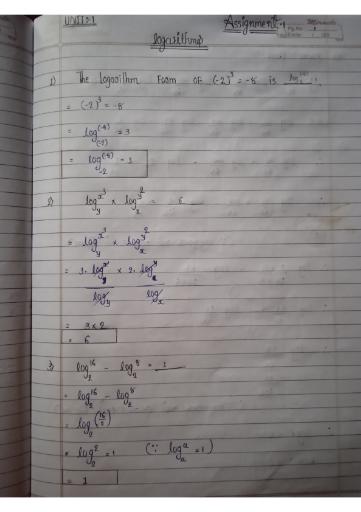 UNIT:1
Assignment-1
logarithms
1) The logarithm form of (-2)³ = -8 is
= (-2)³ = -8
= log₍₋₂₎⁽⁻⁸⁾ = 3
= log₋₂⁽⁻⁸⁾ = 3
2) log_y x³ × log_x y² = 6
= log_y x³ × log_x y²
= 3. log x / log y × 2. log y / log x
= 3 × 2
= 6
3) log₂ 16 - log₂ 8 = 1
= log₂ 16 - log₂ 8
= log₂ (16/8)
= log₂ 2 = 1 (∵ logₐ a = 1)
= 1